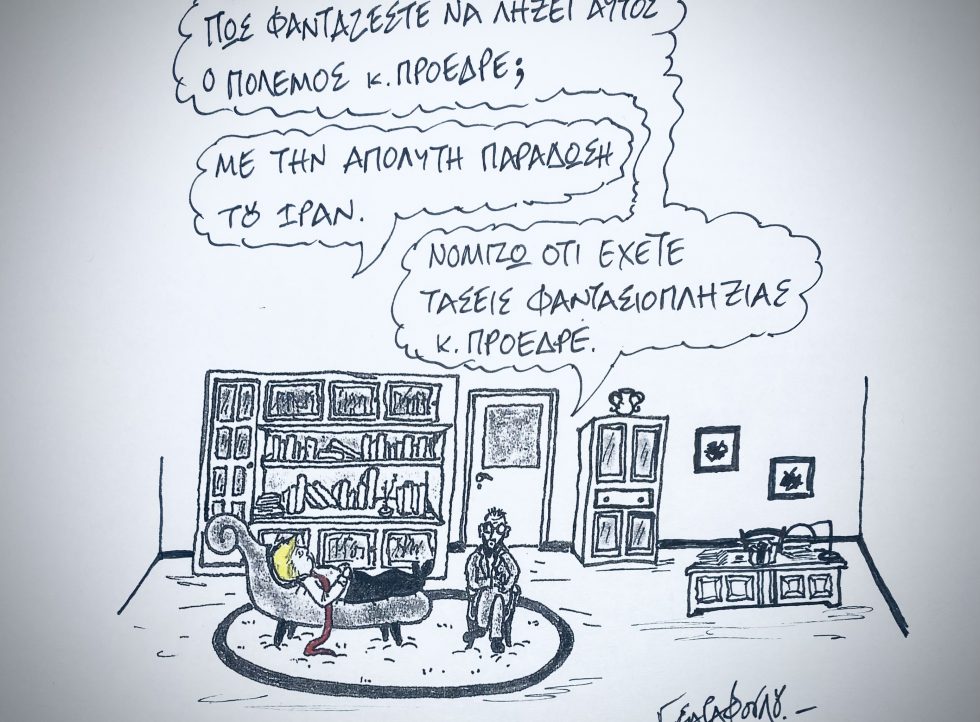 ΠΩΣ ΦΑΝΤΑΖΕΣΤΕ ΝΑ ΛΗΞΕΙ ΑΥΤΟΣ
Ο ΠΟΛΕΜΟΣ κ. ΠΡΟΕΔΡΕ;
ΜΕ ΤΗΝ ΑΠΟΛΥΤΗ ΠΑΡΑΔΩΣΗ
ΤΟΥ ΙΡΑΝ.
ΝΟΜΙΖΩ ΟΤΙ ΕΧΕΤΕ
ΤΑΣΕΙΣ ΦΑΝΤΑΣΙΟΠΛΗΞΙΑΣ
κ. ΠΡΟΕΔΡΕ.